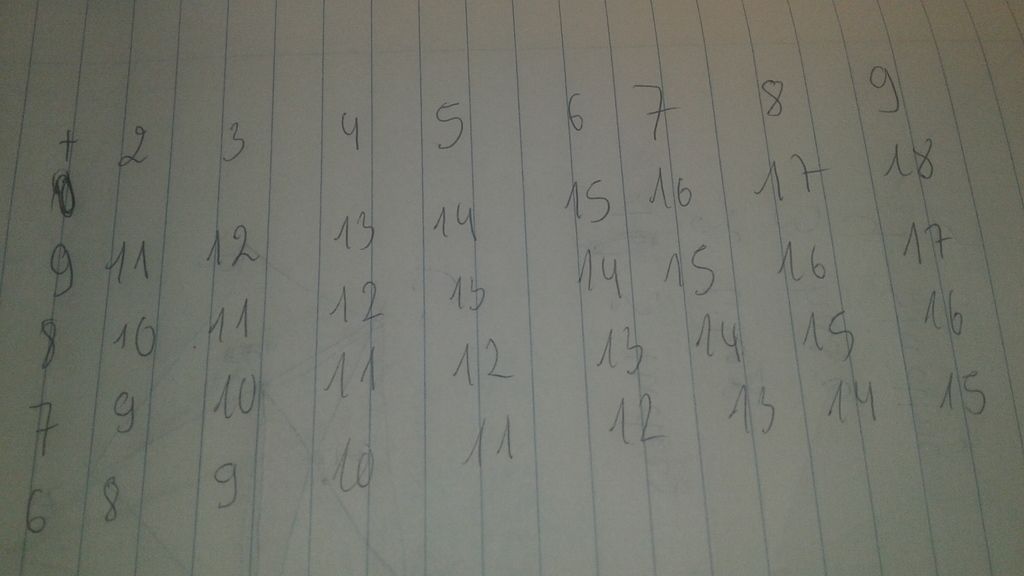 + 2 3 4 5 6 7 8 9
9 11 12 13 14 15 16 17 18
8 10 11 12 13 14 15 16 17
7 9 10 11 12 13 14 15 16
6 8 9 10 11 12 13 14 15